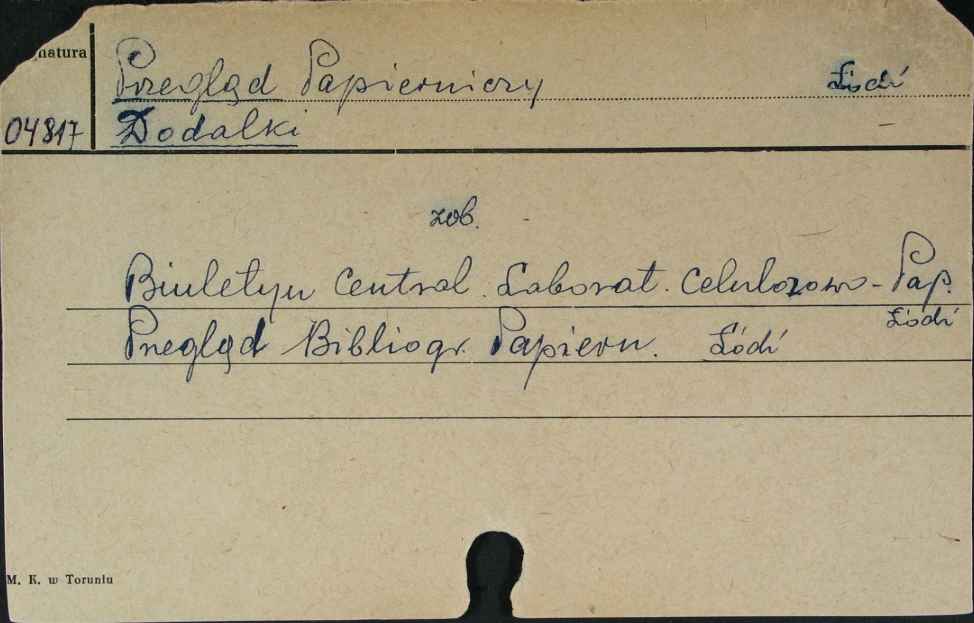 natura
Przegląd Papierniczy Łódź
04817 Dodatki
zob.
Biuletyn Central. Laborat. Celulozowo-Pap.
Łódź
Przegląd Bibliogr. Papiern. Łódź
M. K. w Toruniu